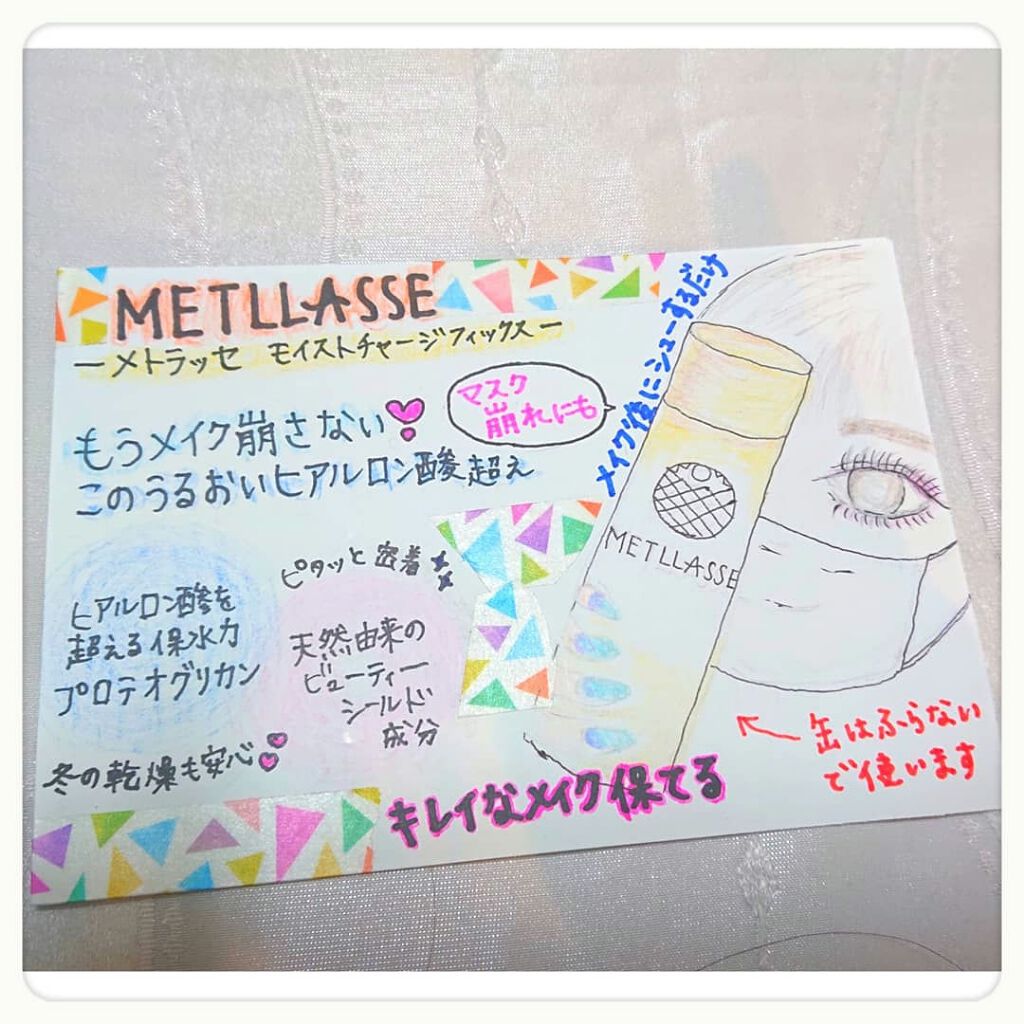 METLLASSE
ーメトラッセ モイストチャージフィックスー
マスク
崩れにも
メイク後にシューするだけ
もうメイク崩さない
このうるおいヒアルロン酸超え
METLLASSE
ヒアルロン酸を
超える保水力
プロテオグリカン
ピタッと密着
天然由来の
ビューティー
シールド
成分
冬の乾燥も安心
缶はふらない
で使います
キレイなメイク保てる